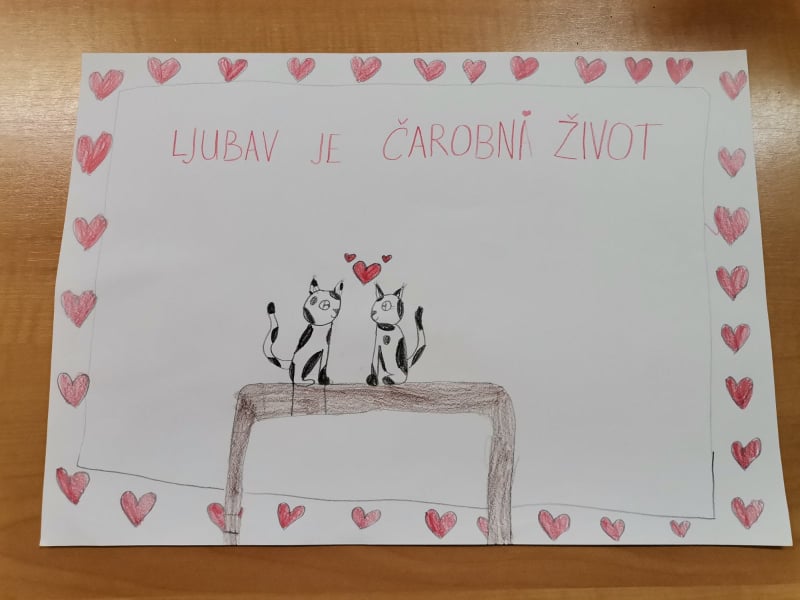 LJUBAV JE ČAROBNI ŽIVOT